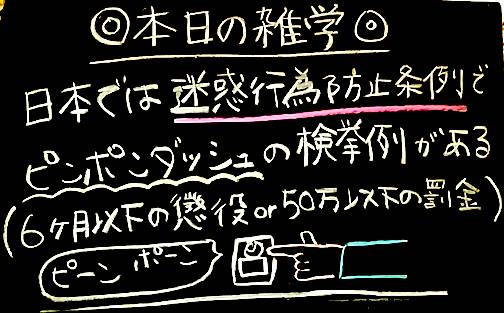 ◎本日の雑学◎
日本では迷惑行為防止条例で
ピンポンダッシュの検挙例がある
(6ヶ月以下の懲役or50万以下の罰金)
ピーンポーン